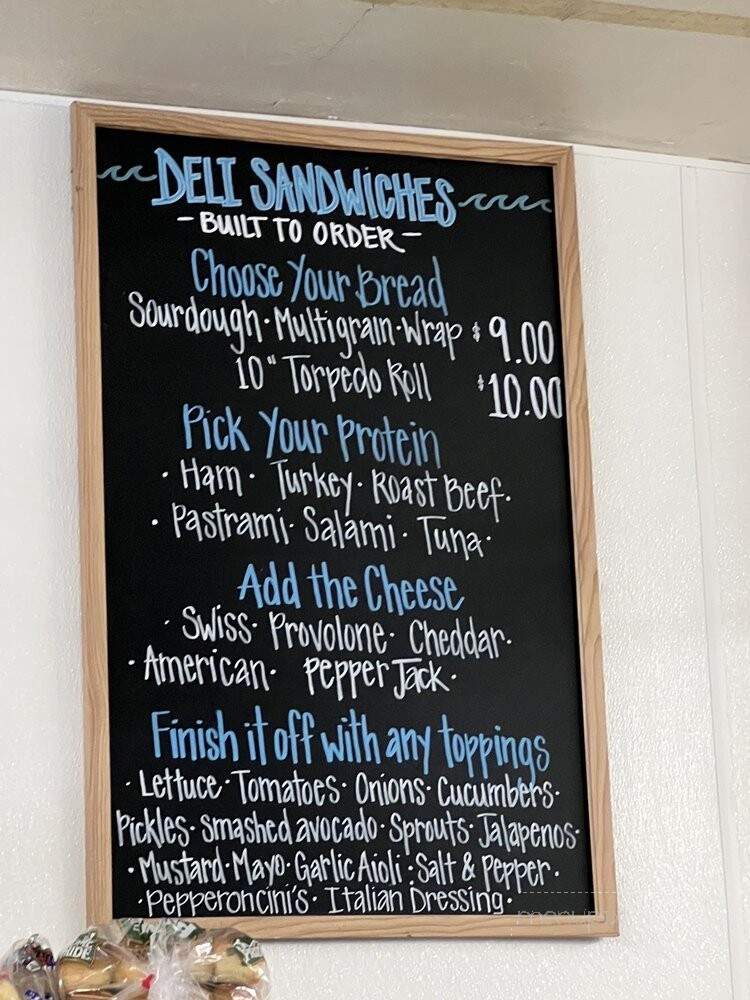 DELI SANDWICHES
- BUILT TO ORDER -
Choose Your Bread
Sourdough · Multigrain · Wrap $9.00
10" Torpedo Roll $10.00
Pick Your Protein
· Ham · Turkey · Roast Beef ·
· Pastrami · Salami · Tuna ·
Add the Cheese
· Swiss · Provolone · Cheddar ·
· American · Pepper Jack ·
Finish it off with any toppings
· Lettuce · Tomatoes · Onions · Cucumbers ·
Pickles · Smashed avocado · Sprouts · Jalapenos ·
· Mustard · Mayo · Garlic Aioli · Salt & Pepper ·
· Pepperoncini's · Italian Dressing ·